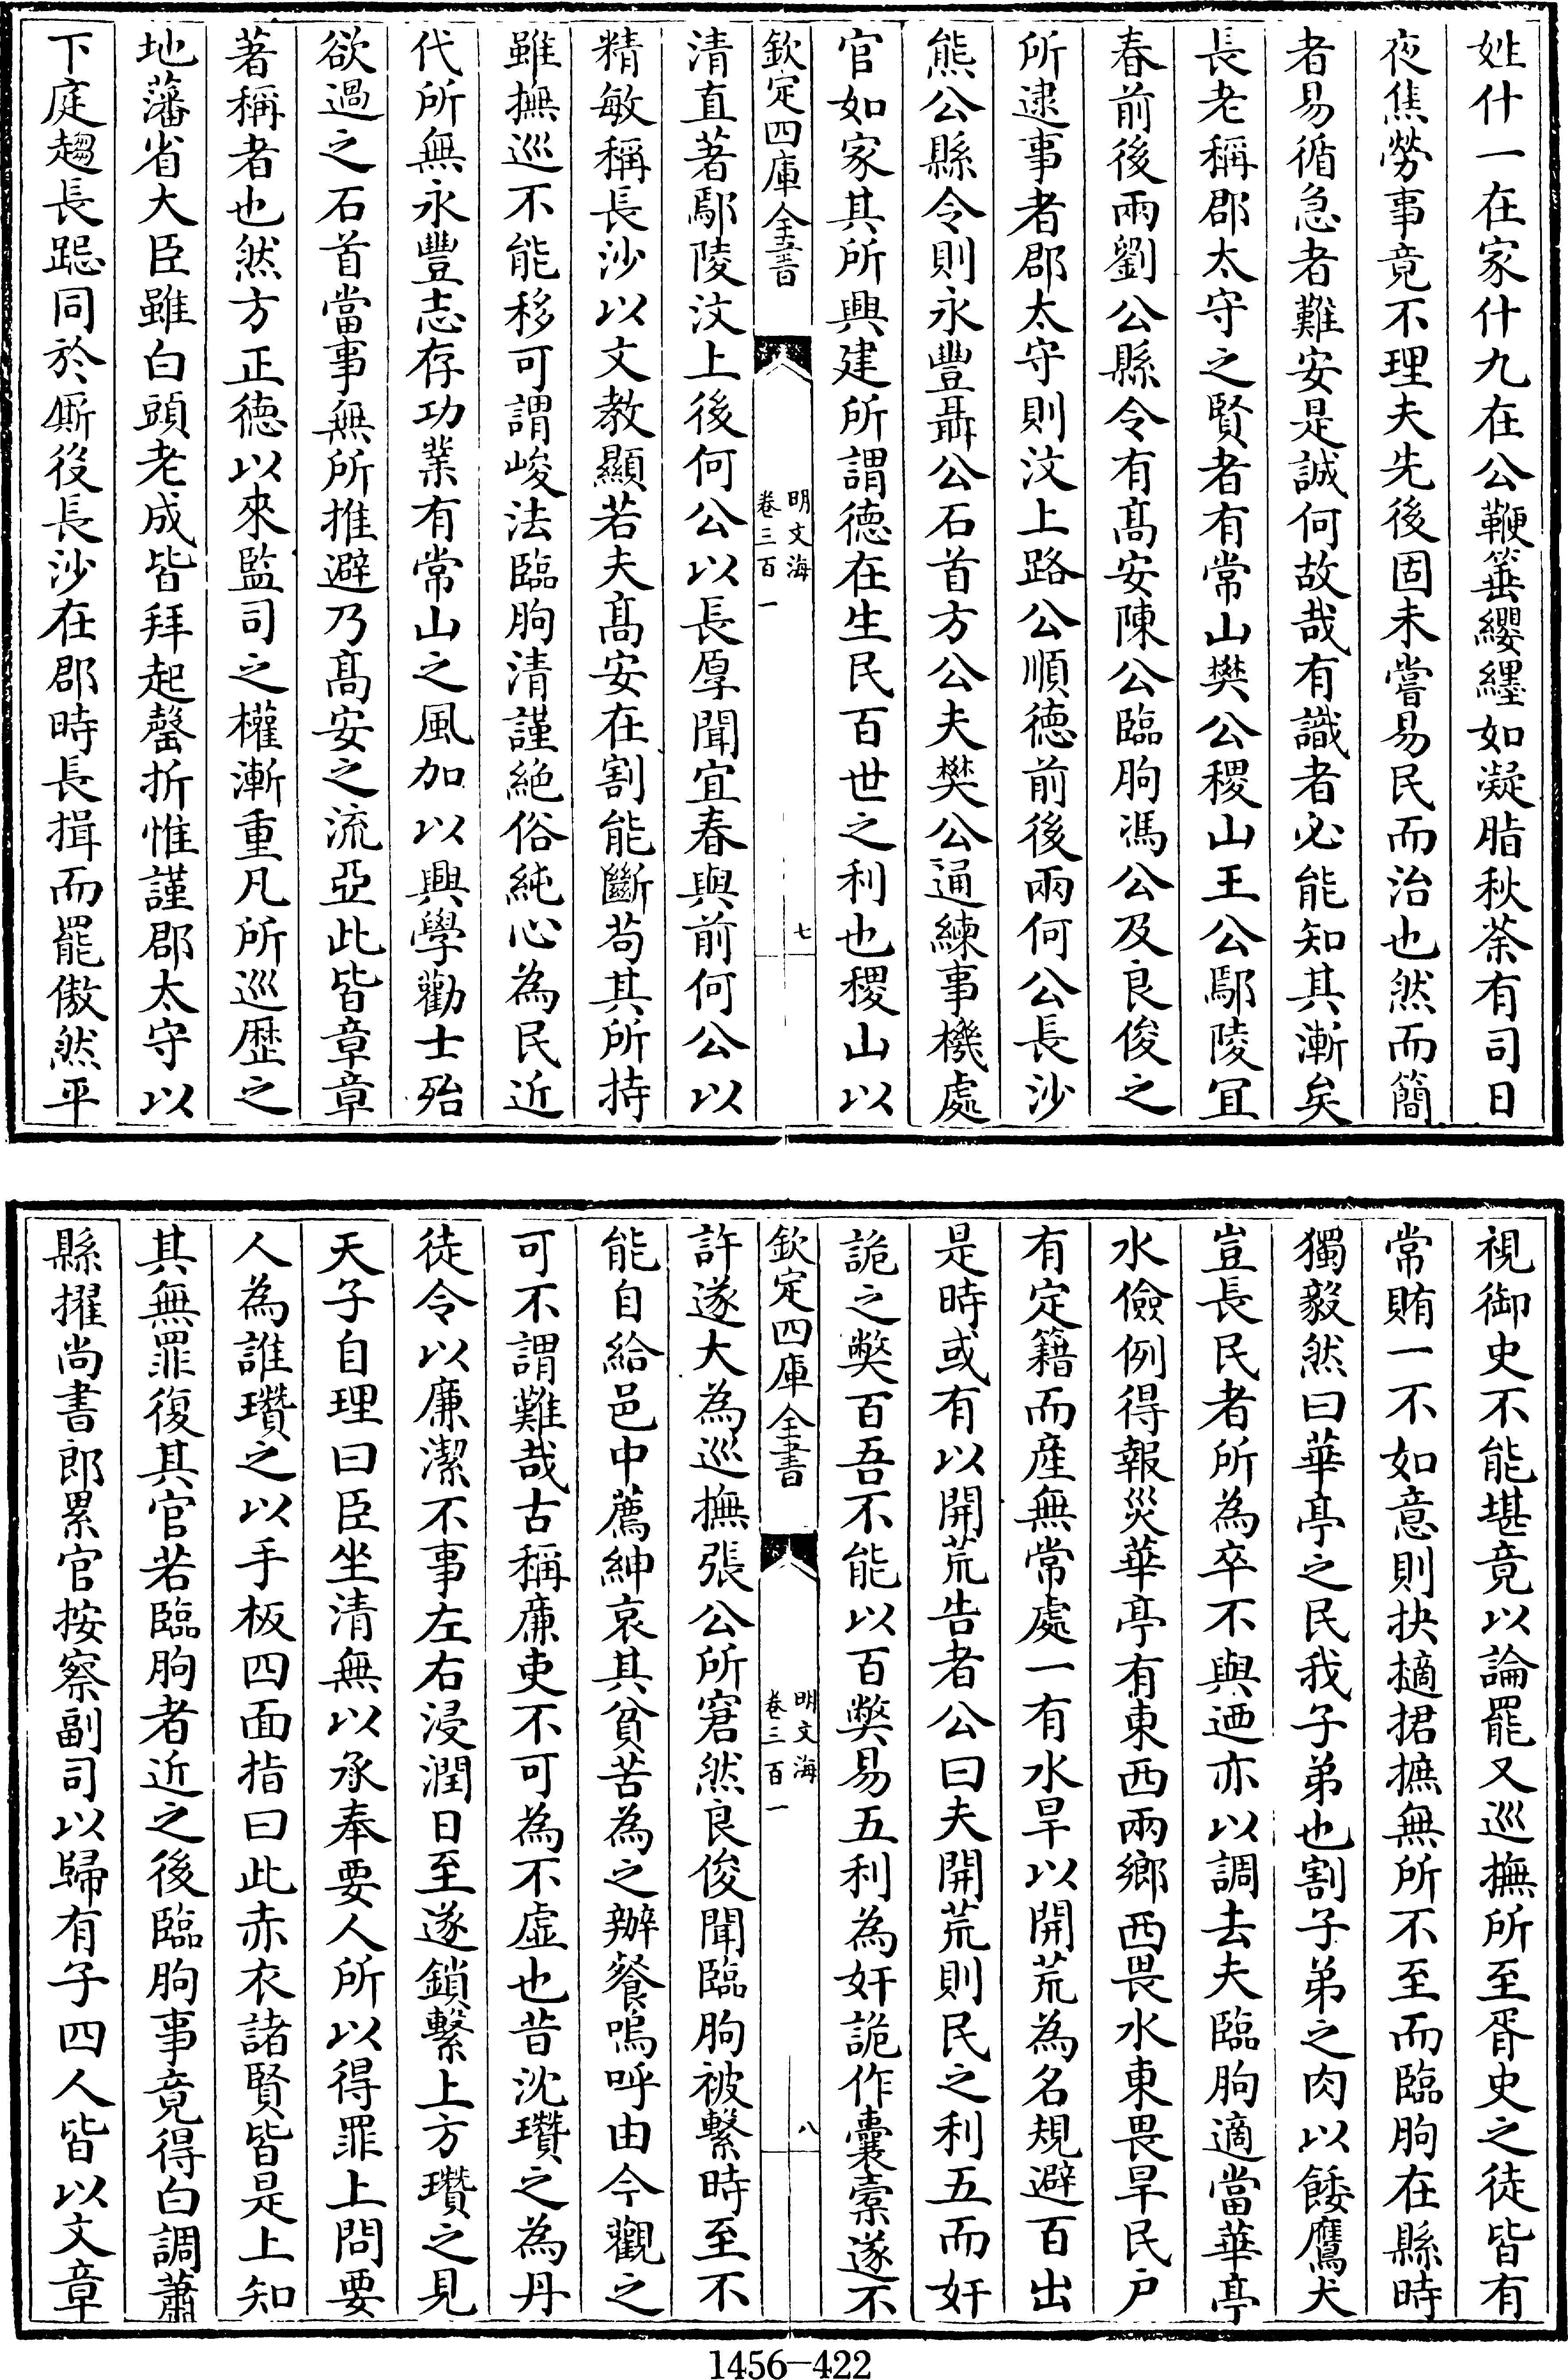 姓什一在家什九在公鞭箠纓纆如凝脂秋荼有司日
夜焦勞事竟不理夫先後固未嘗易民而治也然而簡
者易循急者難安是誠何故哉有識者必能知其漸矣
長老稱郡太守之賢者有常山樊公稷山王公鄢陵冝
春前後兩劉公縣令有髙安陳公臨朐馮公及良俊之
所逮事者郡太守則汶上路公順徳前後兩何公長沙
熊公縣令則永豐聶公石首方公夫樊公通練事機處
官如家其所興建所謂徳在生民百世之利也稷山以
欽定四庫全書
明文海
卷三百一
七
清直著鄢陵汶上後何公以長厚聞宜春與前何公以
精敏稱長沙以文教顯若夫髙安在割能斷苟其所持
雖撫巡不能移可謂峻法臨朐清謹絶俗純心為民近
代所無永豐志存功業有常山之風加以興學勸士殆
欲過之石首當事無所推避乃髙安之流亞此皆章章
著稱者也然方正徳以來監司之權漸重凡所巡歴之
地藩省大臣雖白頭老成皆拜起罄折惟謹郡太守以
下庭趨長跽同於厮役長沙在郡時長揖而罷傲然平
視御史不能堪竟以論罷又巡撫所至胥史之徒皆有
常賄一不如意則抉擿捃摭無所不至而臨朐在縣時
獨毅然曰華亭之民我子弟也割子弟之肉以餧鷹犬
豈長民者所為卒不與迺亦以調去夫臨朐適當華亭
水儉例得報災華亭有東西兩鄉西畏水東畏旱民户
有定籍而産無常處一有水旱以開荒為名規避百出
是時或有以開荒告者公曰夫開荒則民之利五而奸
詭之弊百吾不能以百弊易五利為奸詭作囊橐遂不
欽定四庫全書
明文海
卷三百一
八
許遂大為巡撫張公所窘然良俊聞臨朐被繫時至不
能自給邑中薦紳哀其貧苦為之辦餐嗚呼由今觀之
可不謂難哉古稱廉吏不可為不虚也昔沈瓚之為丹
徒令以廉潔不事左右浸潤日至遂鎖繫上方瓚之見
天子自理曰臣坐清無以承奉要人所以得罪上問要
人為誰瓚之以手板四面指曰此赤衣諸賢皆是上知
其無罪復其官若臨朐者近之後臨朐事竟得白調蕭
縣擢尚書郎累官按察副司以歸有子四人皆以文章
1456—422